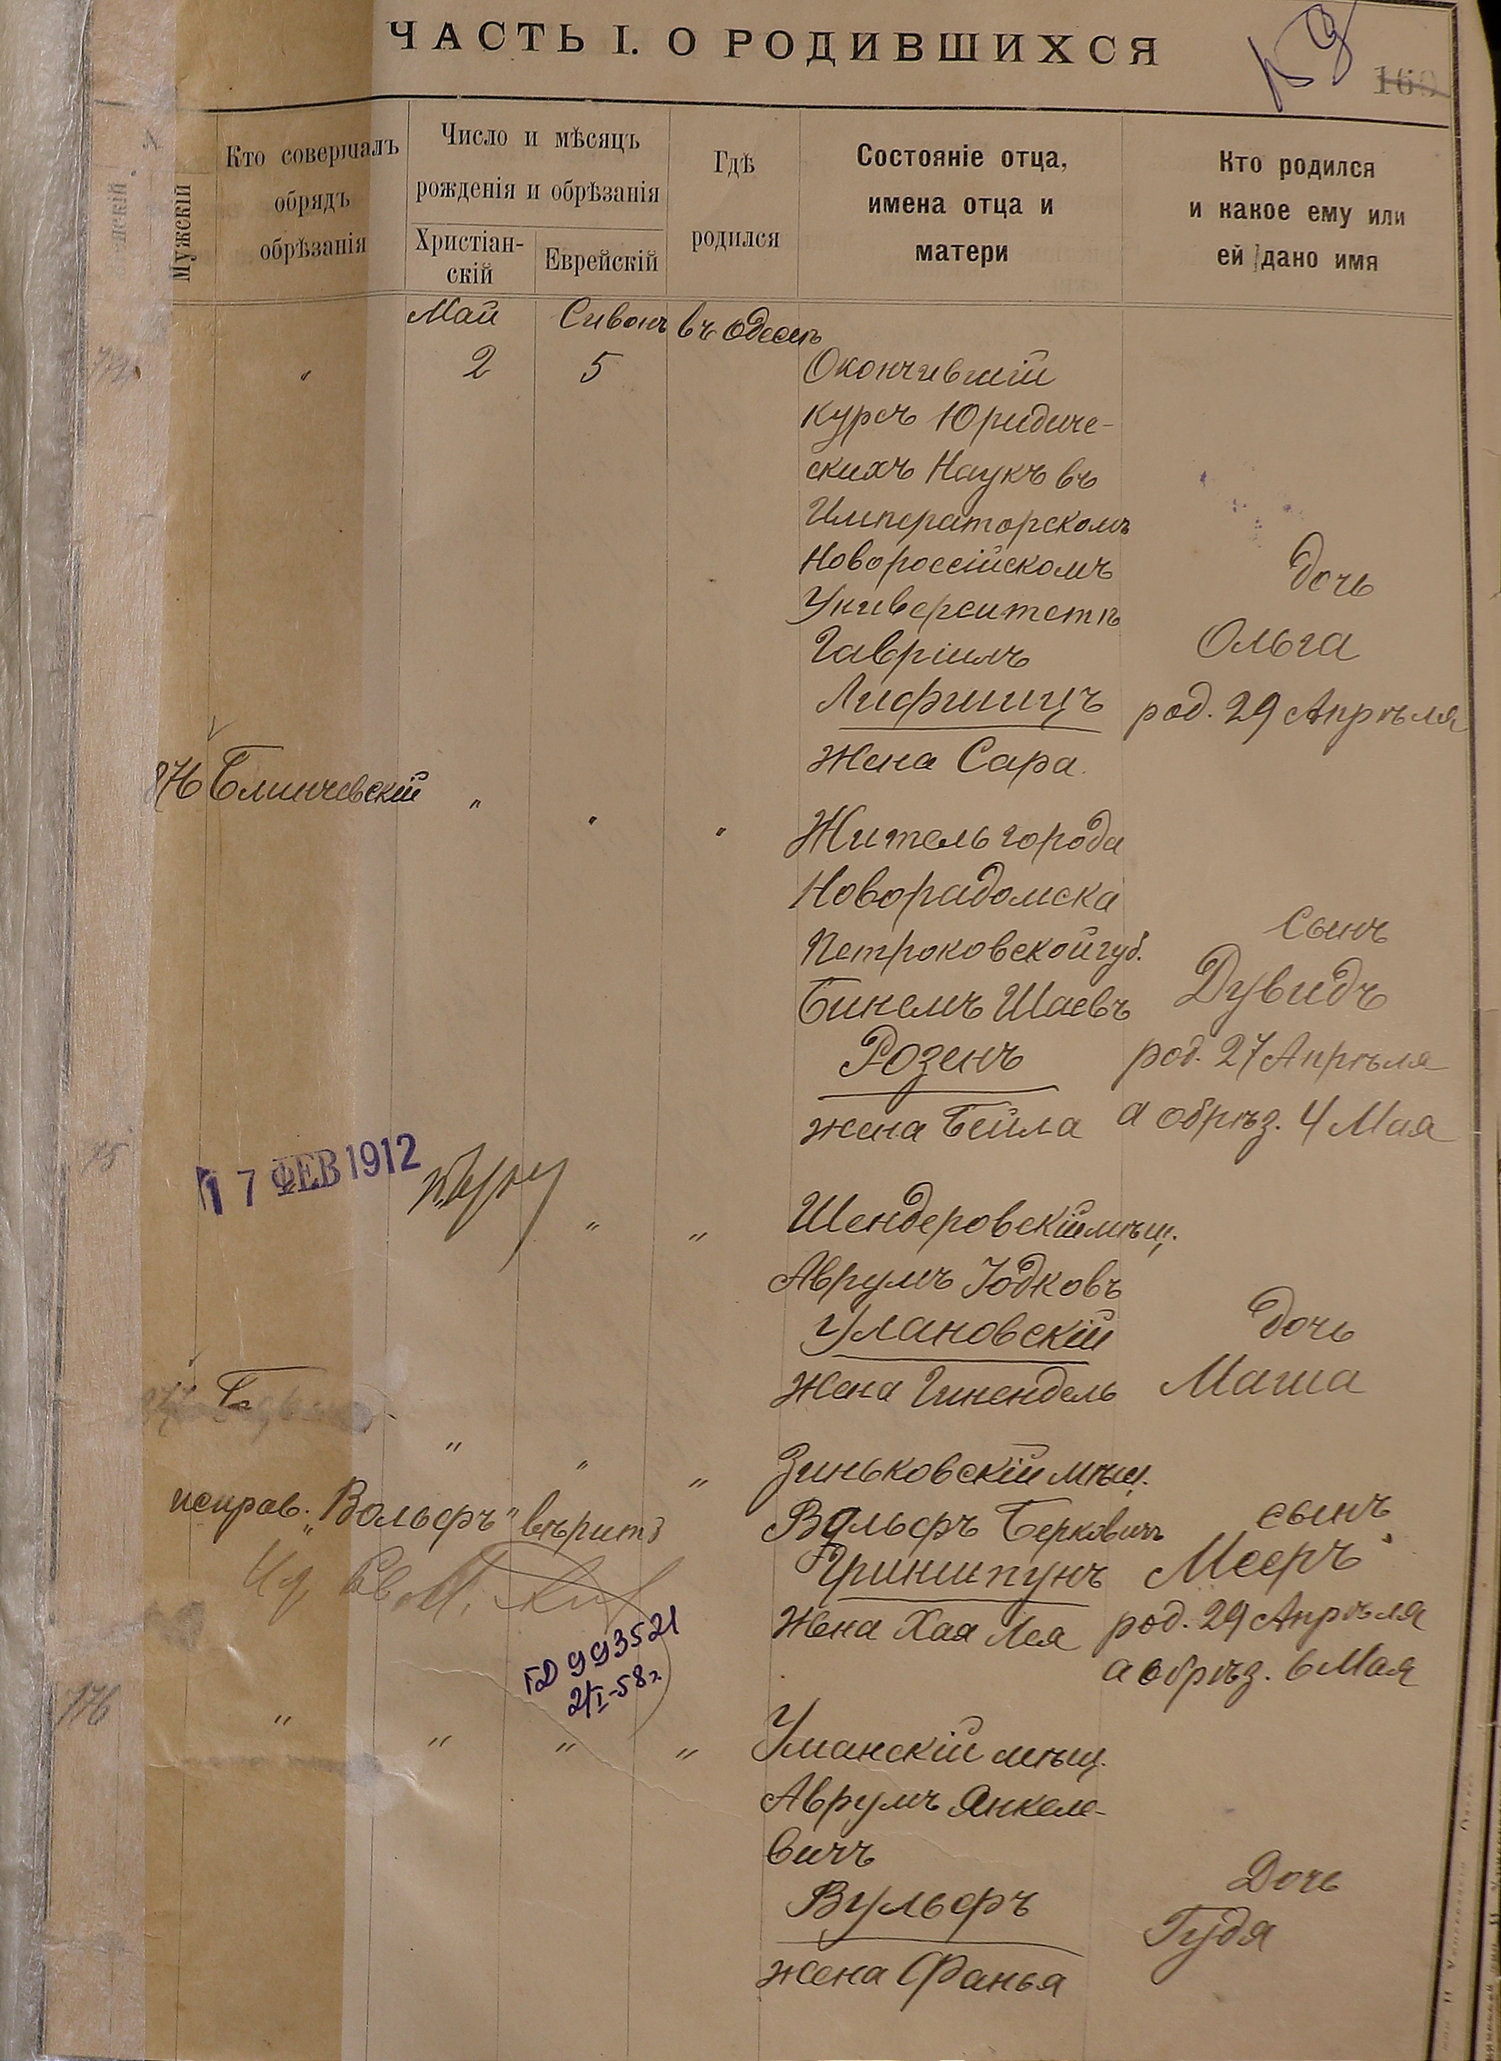 ЧАСТЬ I. О РОДИВШИХСЯ
Мужскій
Кто совершалъ
обрядъ
обрѣзанія
Число и мѣсяцъ
рожденія и обрѣзанія
Христіан-
скій
Еврейскій
Гдѣ
родился
Состояніе отца,
имена отца и
матери
Кто родился
и какое ему или
ей дано имя
Май Сивонъ въ Одессѣ
" 2 5
Окончившій
курсъ Юридиче-
скихъ Наукъ въ
Императорскомъ
Новороссійскомъ
Университетѣ
Гавріилъ
Лифшицъ
жена Сара.
дочь
Ольга
род. 29 Апрѣля
876 Блинчевскій " " "
Житель города
Новорадомска
Петроковской губ.
Бинемъ Шаевъ
Розенъ
жена Бейла
Сынъ
Дувидъ
род. 27 Апрѣля
а обрѣз. 4 Мая
75
17 ФЕВ 1912
" "
Шендеровскій мѣщ.
Аврумъ Юдковъ
Улановскій
жена Гинендель
дочь
Маша
" " "
Зиньковскій мѣщ.
Вольфъ Берковичъ
Гриншпунъ
жена Хая Лея
сынъ
Мееръ
род. 29 Апрѣля
а обрѣз. 6 Мая
исправ. "Вольфъ" вѣрить
993521
2/I-58г
776 " " " "
Уманскій мѣщ.
Аврумъ Янкеле-
вичъ
Вульфъ
жена Фанья
Дочь
Гудя